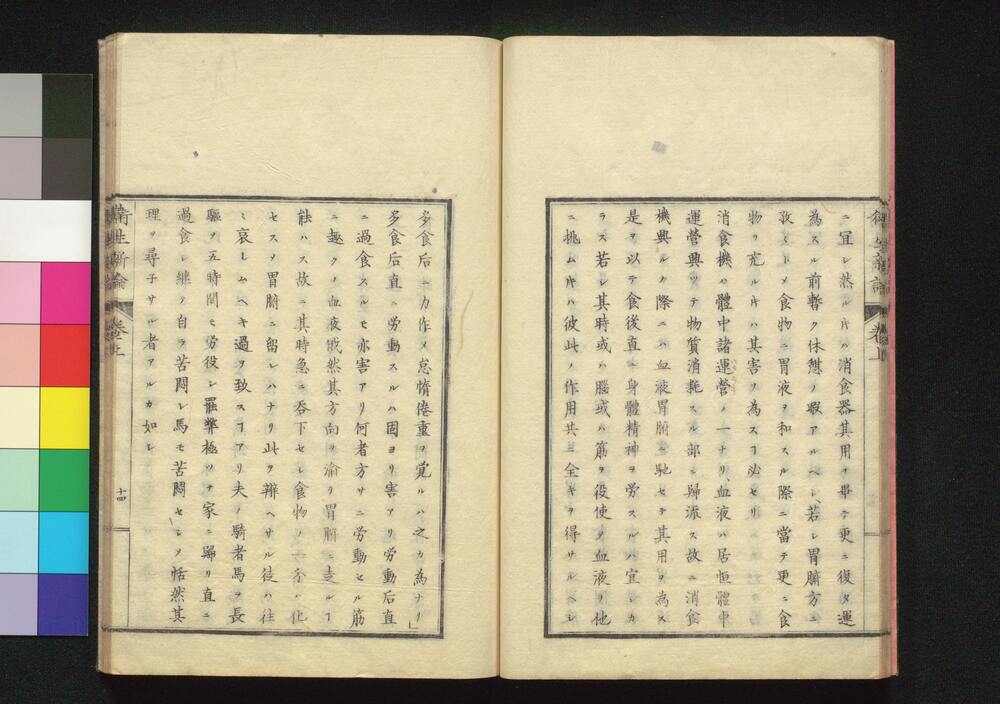 ニ冝シ然ル𪜈ハ消食器其用ヲ畢テ更ニ復タ運
為スル前暫ク休憇ノ暇アルベシ若シ胃腑方ニ
孜々トメ食物ニ胃液ヲ和スル際ニ當テ更ニ食
物ヲ充ルキハ其害ヲ為スヿ必セリ
消食機ハ體中諸運營ノ一ナリ血液ハ居恒體中
運營興ツテ物質消耗スル部ニ歸流ス故ニ消食
機興ルノ際ニハ血液胃腑ニ馳セテ其用ヲ為ス
是ヲ以テ食後直ニ身體精神ヲ勞スルハ宜シカ
ラス若シ其時或ハ腦或ハ筋ヲ役使メ血液ヲ他
ニ挑ムキハ彼此ノ作用共ニ全キヲ得サルベシ
多食后ニ力作メ怠惰倦重ヲ覚ルハ之カ為ナリ
多食后直ニ勞動スルハ固ヨリ害アリ勞動后直
ニ過食スルモ亦害アリ何者方サニ勞動セル筋
ニ趣クノ血液俄然其方向ヲ渝リ胃腑ニ走ルヿ
能ハス故ニ其時急ニ呑下セシ食物ノ一香ハ化
セスメ胃腑ニ留レハナリ此ヲ辨ヘサル徒ハ往
々哀レムヘキ過ヲ致スヿアリ夫ノ騎者馬ヲ長
驅メ五時間モ勞役シ罷弊極ツテ家ニ歸リ直ニ
過食シ継テ自ラ苦悶シ馬モ苦悶セシメ恬然其
理ヲ尋子サル者アルカ如シ
衛生新論
卷上
十四